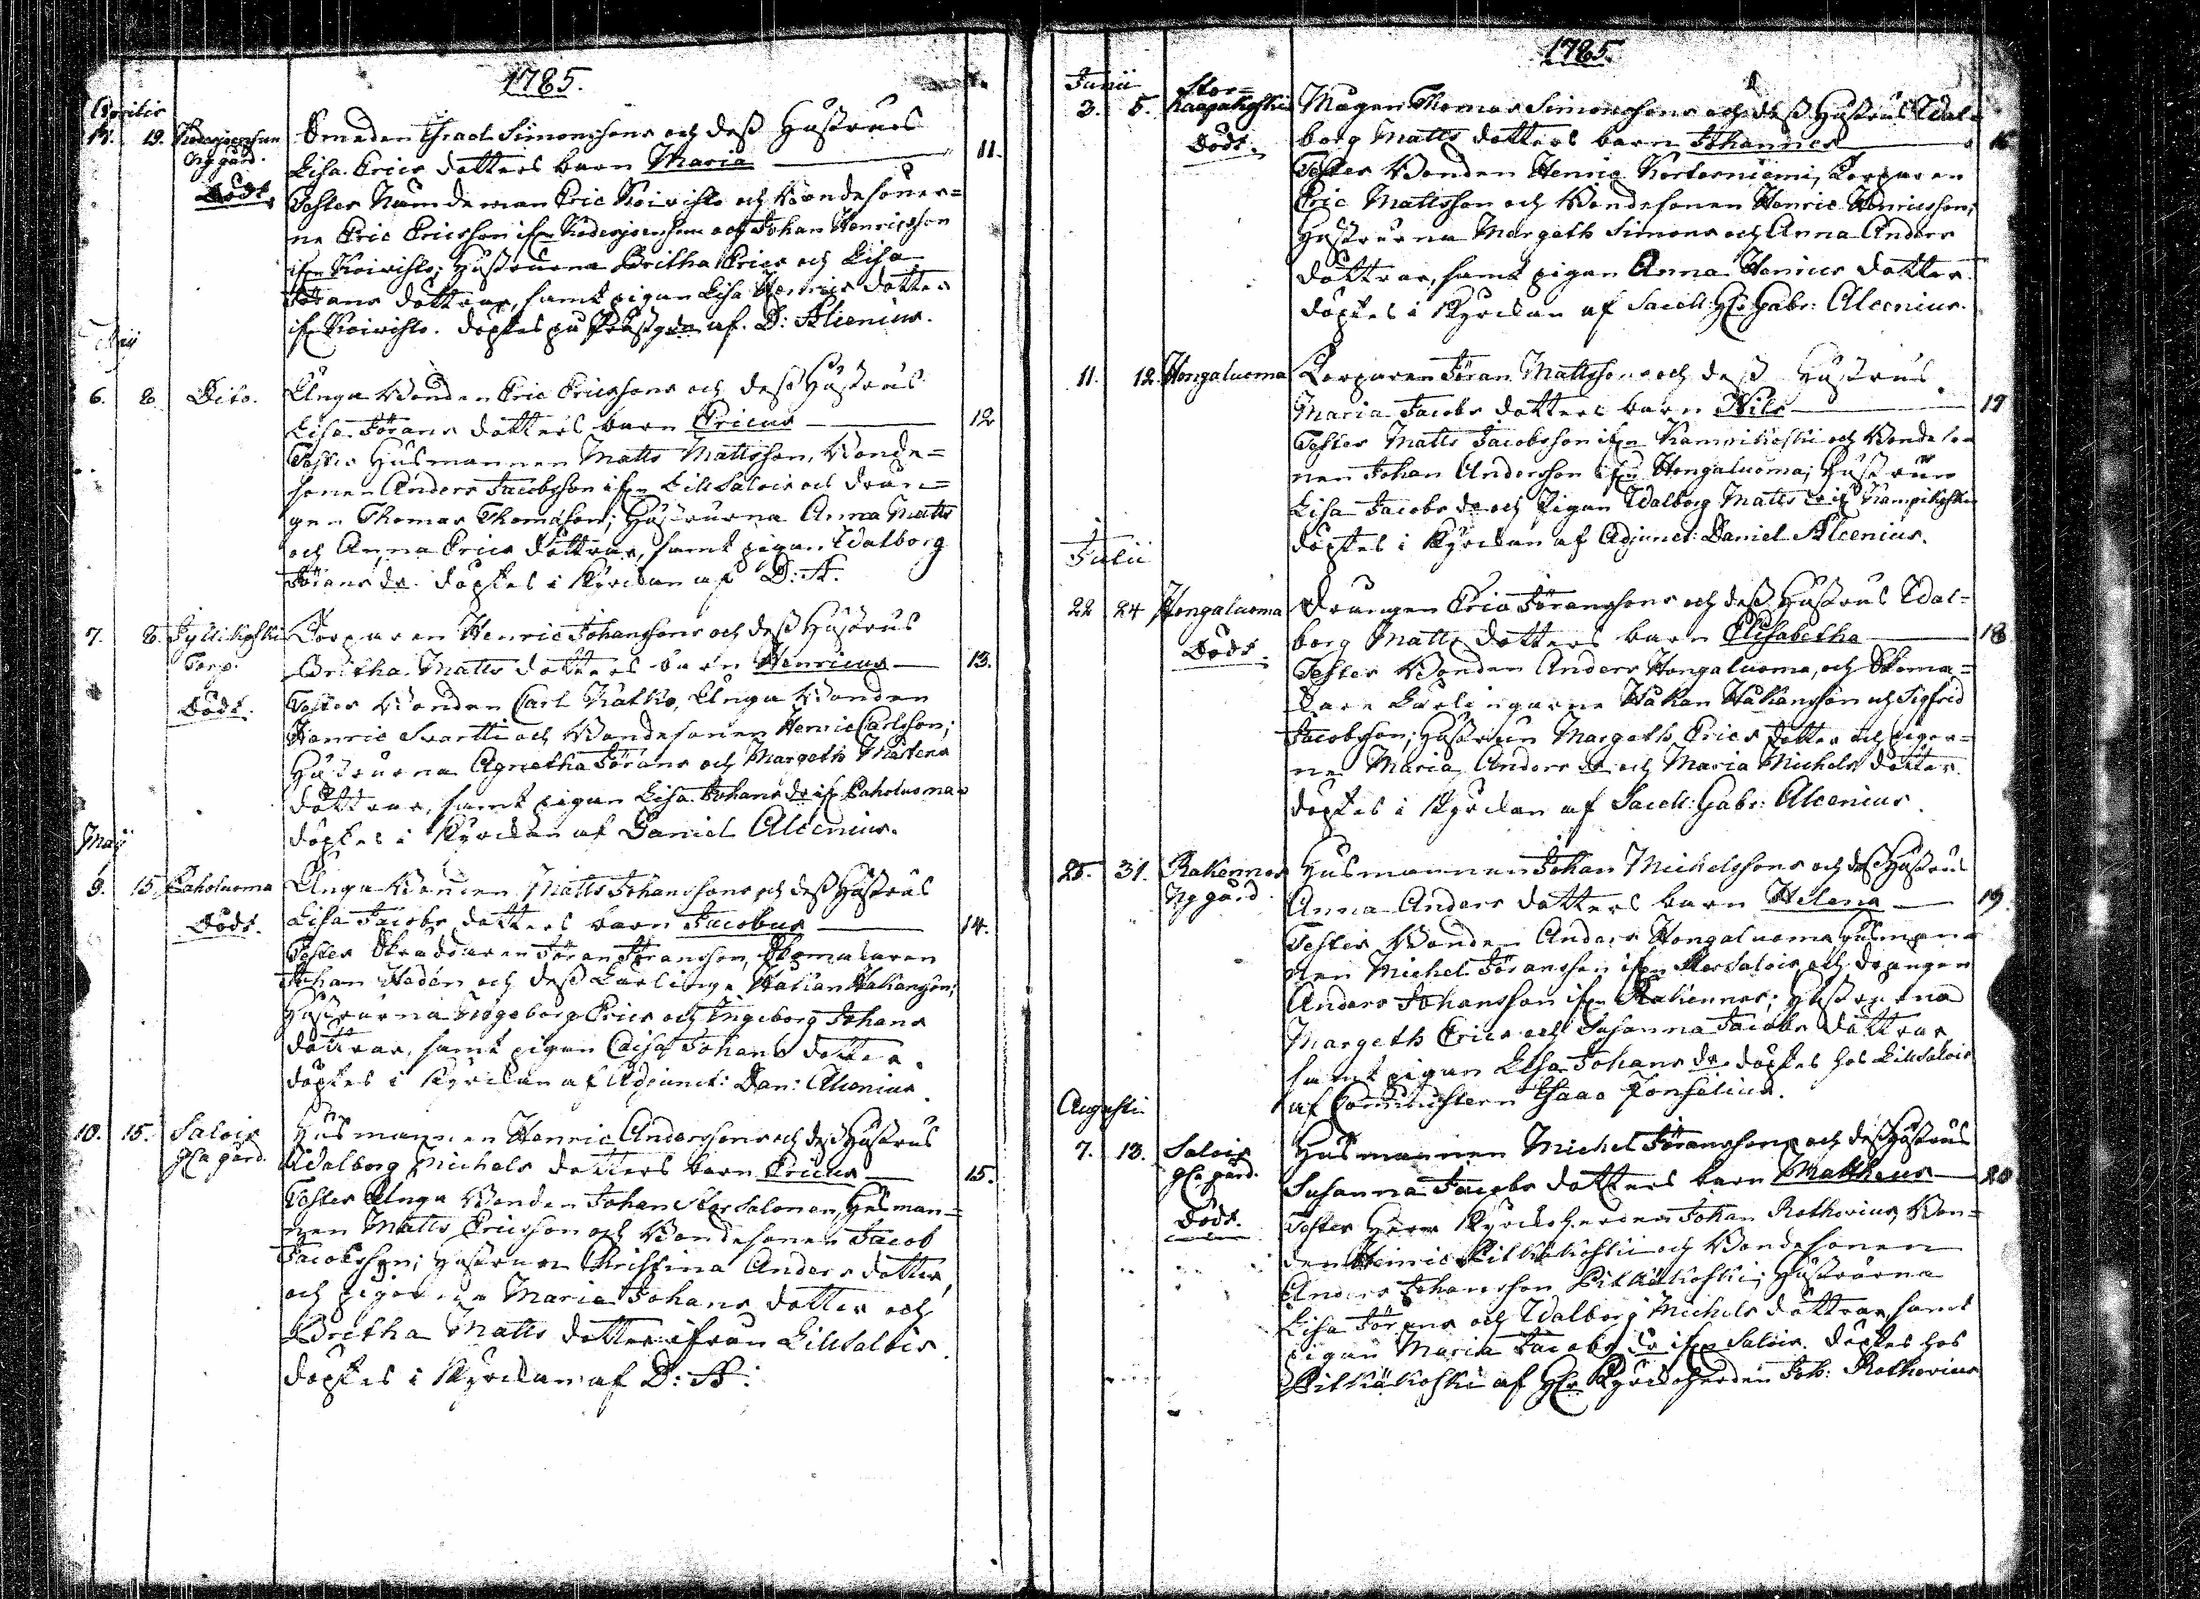 1785.
Aprilis
17. 19. Kodesjoensun Smeden Israel Simonssons och dess Hustrus
Nygård. Lisa Erics dotters barn Maria 11.
Död. Testes Nämdeman Eric Koivisto och Bondesöner=
ne Eric Ericsson ifrn och Johan Henricsson
ifrn Koivisto; Hustrurna Britha Erics och Lisa
Jörans döttrar, samt pigan Lisa Henrics dotter
ifr Koivisto. döptes på af D: Alcenius.
Maji
6. 8. Dito. Unga Bonden Eric Ericssons och dess Hustrus
Lisa Jörans dotters barn Ericus 12
Testes Husmannen Matts Mattsson, Bonde=
sonen Anders Jacobsson ifrn Lill Salois och drän=
gen Thomas Thomasson; Hustrurna Anna Matts
och Anna Erics döttrar, samt pigan Walborg
Jörans dr. döptes i Kyrckan af D: A.
7. 8. Jyllikoski Torparen Henric Johanssons och dess Hustrus
Torp. Britha Matts dotters barn Henricus 13.
Död. Testes Bonden Carl Katko, Unga Bonden
Henric Svartti och Bondesonen Henric Carlsson;
Hustrurna Agnetha Jörans och Margeth Mårtens
döttrar, samt pigan Lisa Johans dr ifr Paholuoma
döptes i Kyrckan af Daniel Alcenius.
Maji
9. 15. Paholuoma Unga Bonden Matts Johanssons och dess Hustrus
Död. Lisa Jacobs dotters barn Jacobus 14.
Testes Skräddaren Jöran Jöransson, Skomakaren
Johan Hedén och dess Lärlinge Håkan Håkansson;
Hustrurna Ingeborg Erics och Ingeborg Johans
döttrar, samt pigan Caisa Johans dotter.
döptes i Kyrckan af Adjunct: Dan: Alcenius.
10. 15. Salois Husmannen Henric Anderssons och dess Hustrus
Gla gård. Walborg Michels dotters barn Ericus 15.
Testes Unga Bonden Johan Stor Salonen, Husman=
nen Matts Ericsson och Bondesonen Jacob
Jacobsson; Hustrun Christina Anders dotter,
och pigorna Maria Johans dotter och
Britha Matts dotter ifrån Lill Salois.
döptes i Kyrckan af D: A:
1785.
Junii Stor=
3. 5. Kaapakoski Mågen Thomas Simonssons och dess Hustrus Wal=
Död. borg Matts dotters barn Johannes 16
Testes Bonden Henric Korteniemi, Torparen
Eric Mattsson och Bondesonen Henric Henricsson;
Hustrurna Margeth Simons och Anna Anders
döttrar, samt pigan Anna Henrics dotter.
döptes i Kyrckan af Sacell: Hr Gabr: Alcenius.
11. 12. Hongaluoma Torparen Jöran Mattssons och dess Hustrus
Maria Jacobs dotters barn Nils 17
Testes Matts Jacobsson ifrn och Bondeso
nen Johan Andersson ifrn Hongaluoma; Hustrun
Lisa Jacobs dr och Pigan Walborg Matts dr
döptes i Kyrckan af Adjunct: Daniel Alcenius.
Julii
22 24 Hongaluoma Drängen Eric Jöranssons och dess Hustrus Wal=
Död. borg Matts dotters barn Elisabetha 18
Testes Bonden Anders Hongaluoma, och Skoma=
kare Lärlingarne Håkan Håkansson och Sigfrid
Jacobsson; Hustrun Margeth Erics dotter och pigor=
na Maria Anders dr och Maria Michels dotter
döptes i Kyrckan af Sacell: Gabr: Alcenius.
25. 31. Rakennos Husmannen Johan Michelssons och dess Hustrus
Nygård. Anna Anders dotters barn Helena 19.
Testes Bonden Anders Hongaluoma, Husman=
nen Michel Jöransson ifrn Stor Salois och drängen
Anders Johansson ifrn Rakennos; Hustrurna
Margeth Erics och Susanna Jacobs döttrar
samt pigan Lisa Johans dr. döptes hos Lill Salois
af Comministern Isaac Fonselius.
Augusti
7. 13. Salois Husmannen Michel Jöranssons och dess Hustrus
Gla gård. Susanna Jacobs dotters barn Mattheus 20
Död. Testes Herr Kyrckoherden Johan Rothovius, Bon=
den Henric Pitkäkoski och Bondesonen
Anders Johansson Pitkäkoski; Hustrurna
Lisa Jörans och Walborg Michels döttrar, samt
pigan Maria Jacobs dr ifrn Salois. döptes hos
Pitkäkoski af Hr Kyrckoherden Joh: Rothovius